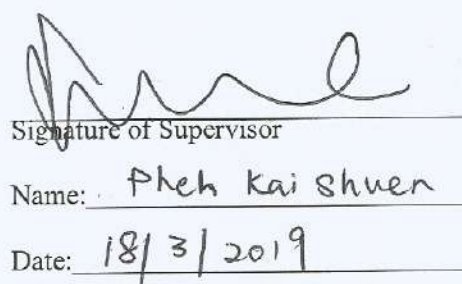 Signature of Supervisor
Name: Pheh Kai Shuen
Date: 18/3/2019